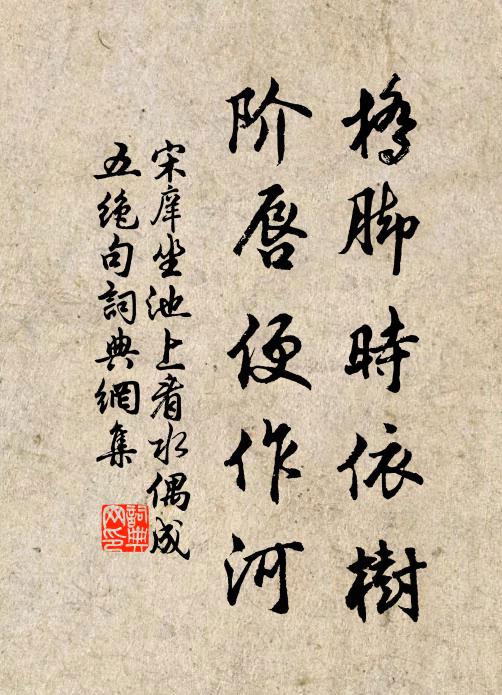 桥脚時依樹
阶唇便作河
宋庠坐池上看水偶成
五绝句詞典網集
詞典
网印